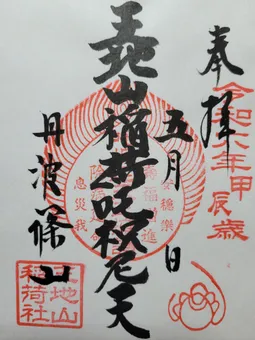 奉拝
令和六年甲辰歳
五月 日
王地山稲荷吒枳尼天
丹波篠山
王地山
稲荷社